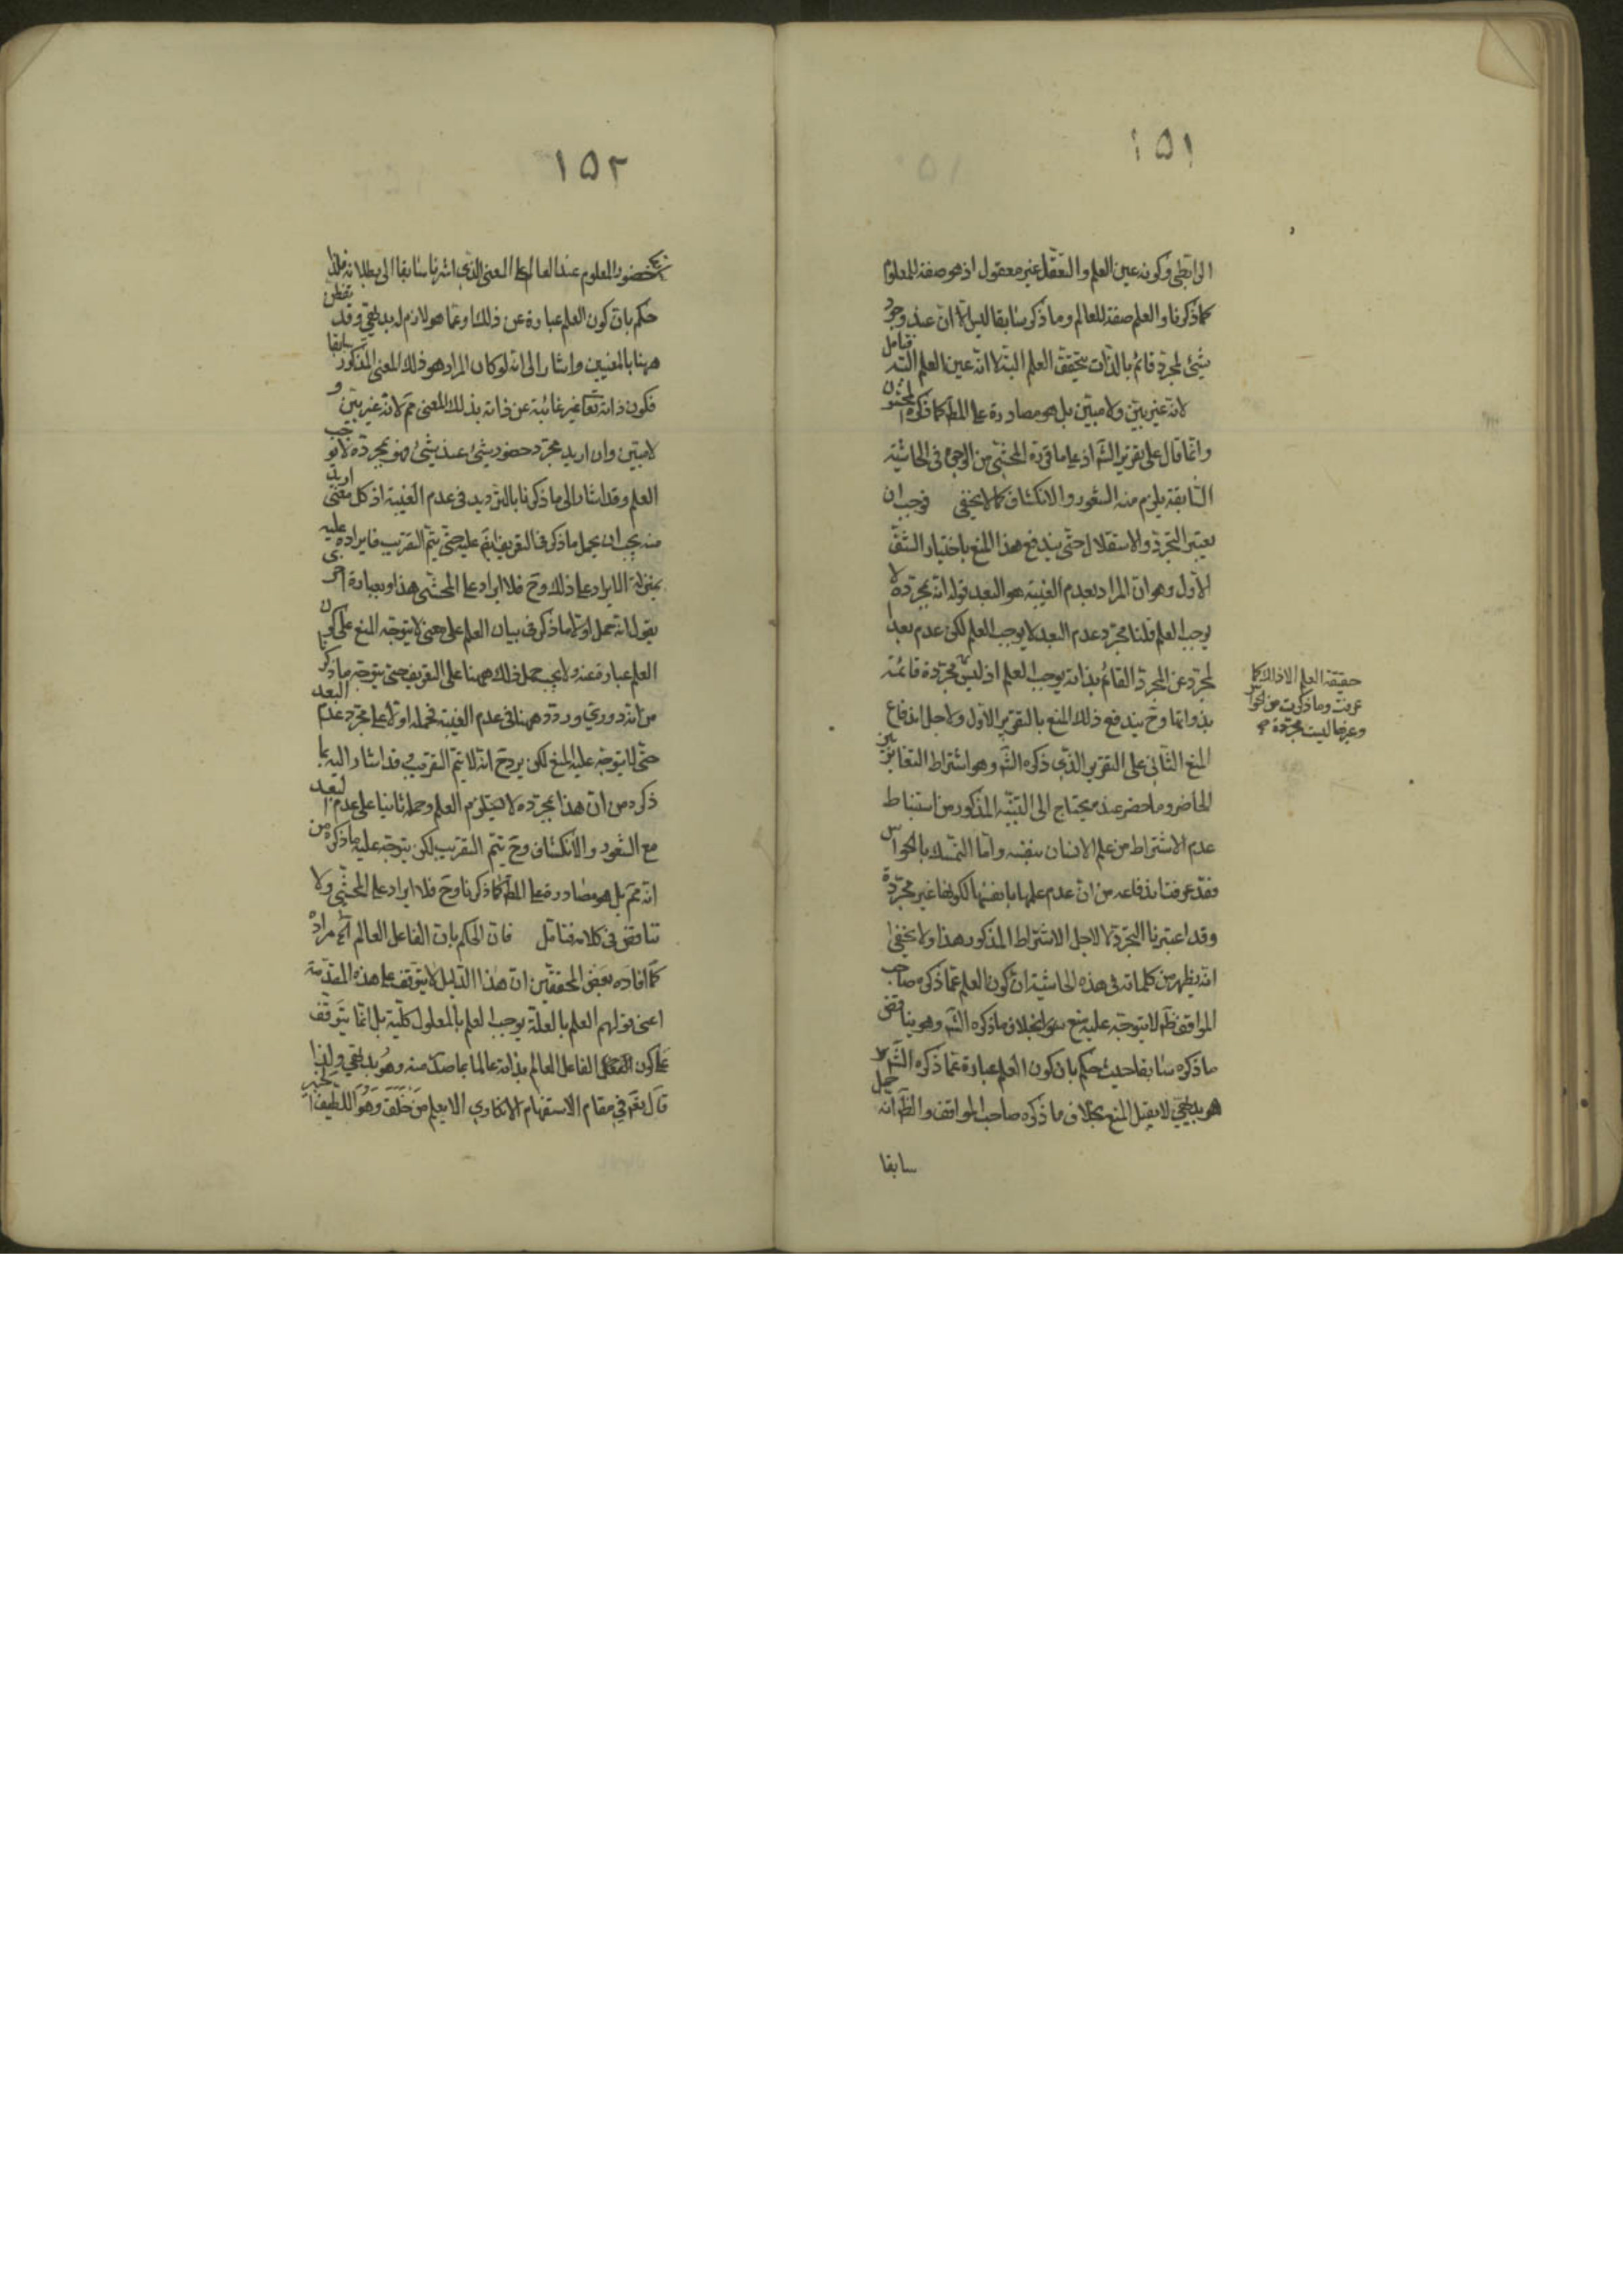 ١٥١
الرابطي وكونه عين العلم والتعقل غير معقول اذ هو صفة المعلوم
كما ذكرنا والعلم صفة للعالم وما ذكر سابقا ليس الا ان عند وجود
شيئ لمجرد قائم بالذات يتحقق العلم البتة لا انه عين العلم البتة فتامل
لانه غير بين ولا مبين بل هو مصادرة على المط كما ذكره المحشون
وانما قال على تقرير الش اذ على ما قرره المحشي من الوجه في الحاشية
السابقة يلزم منه الشعور والانكشاف كما لا يخفى فوجب ان
يعتبر التجرد والاستقلال حتى يندفع هذا المنع باختيار الشق
الاول وهو ان المراد بعدم الغيبة هو البعد قوله انه بمجرده لا
يوجب العلم قلنا مجرد عدم البعد لا يوجب العلم لكن عدم بعد
لمجرد عن المجرد القائم بذاته يوجب العلم اذ ليس مجردة قائمة
بذواتها وح يندفع ذلك المنع بالتقرير الاول ولاجل اندفاع
المنع الثاني على التقرير الذي ذكره الش وهو اشتراط التغاير بين
الحاضر وما حضر عنده يحتاج الى التنبيه المذكور من استنباط
عدم الاشتراط من علم الانسان بنفسه واما التمسك بالحواس
فقد عرفت اندفاعه من ان عدم علمها بانفسها لكونها غير مجردة
وقد اعتبرنا التجرد لا لاجل الاشتراط المذكور هذا ولا يخفى
انه يظهر من كلماته في هذه الحاشية ان كون العلم عما ذكره صاحب
المواقف ظ لا يتوجه عليه منع بخلاف ما ذكره الش وهو يناقض
ما ذكره سابقا حيث حكم بان كون العلم عبارة عما ذكره الش
هو بديهي لا يقبل المنع بخلاف ما ذكره صاحب المواقف والظ انه حمل
سابقا
حقيقة العلم الا ذلك كما
عرفت وما ذكرت من الحواس
وغيرها ليست مجردة
١٥٢
حضور المعلوم عند العالم على المعنى الذي اشرنا سابقا الى بطلانه فلذا
حكم بان كون العلم عبارة عن ذلك او عما هو لازم له بديهي وقد تفطن
ههنا بالمعنيين واشار الى انه لو كان المراد هو ذلك المعنى المذكور سابقا
فكون ذاته تعا غير غائبة عن ذاته بذلك المعنى مم لانه غير بين و
لا مبين وان اريد مجرد حضور شيئ عند شيئ فهو بمجرده لا يوجب
العلم وقد اشار الى ما ذكرنا بالترديد في عدم الغيبة اذ كل معنى اريد
منه يجب ان يحمل ما ذكر في التعريف عليه حتى يتم التقريب فايراده عليه
بمنزلة الايراد على ذلك وح فلا ايراد على المحشي هذا وبعبارة اخرى
يقول انه حمل اولا ما ذكر في بيان العلم على معنى لا يتوجه المنع على كون
العلم عبارة عنه ولا يجب حمل ذلك ههنا على التعريف حتى يتوجه ما ذكرنا
من انه دوري وردد ههنا في عدم الغيبة فحمله اولا على مجرد عدم البعد
حتى لا يتوجه عليه المنع لكن يرد ح انه لا يتم التقريب وقد اشار اليه بما
ذكره من ان هذا بمجرده لا يستلزم العلم وحمله ثانيا على عدم البعد
مع الشعور والانكشاف وح يتم التقريب لكن يتوجه عليه ما ذكره من
انه مم بل هو مصادرة على المط كما ذكرنا وح فلا ايراد على المحشي ولا
تناقض في كلامه فتامل فان الحكم بان الفاعل العالم آه مراده
كما افاده بعض المحققين ان هذا الدليل لا يتوقف على هذه المقدمة
اعني قولهم العلم بالعلة يوجب العلم بالمعلول كلية بل انما يتوقف
على كون الفاعل العالم بذاته عالما بما صدر منه وهو بديهي ولذا
قال تعم في مقام الاستفهام الانكاري الا يعلم من خلق وهو اللطيف الخبير